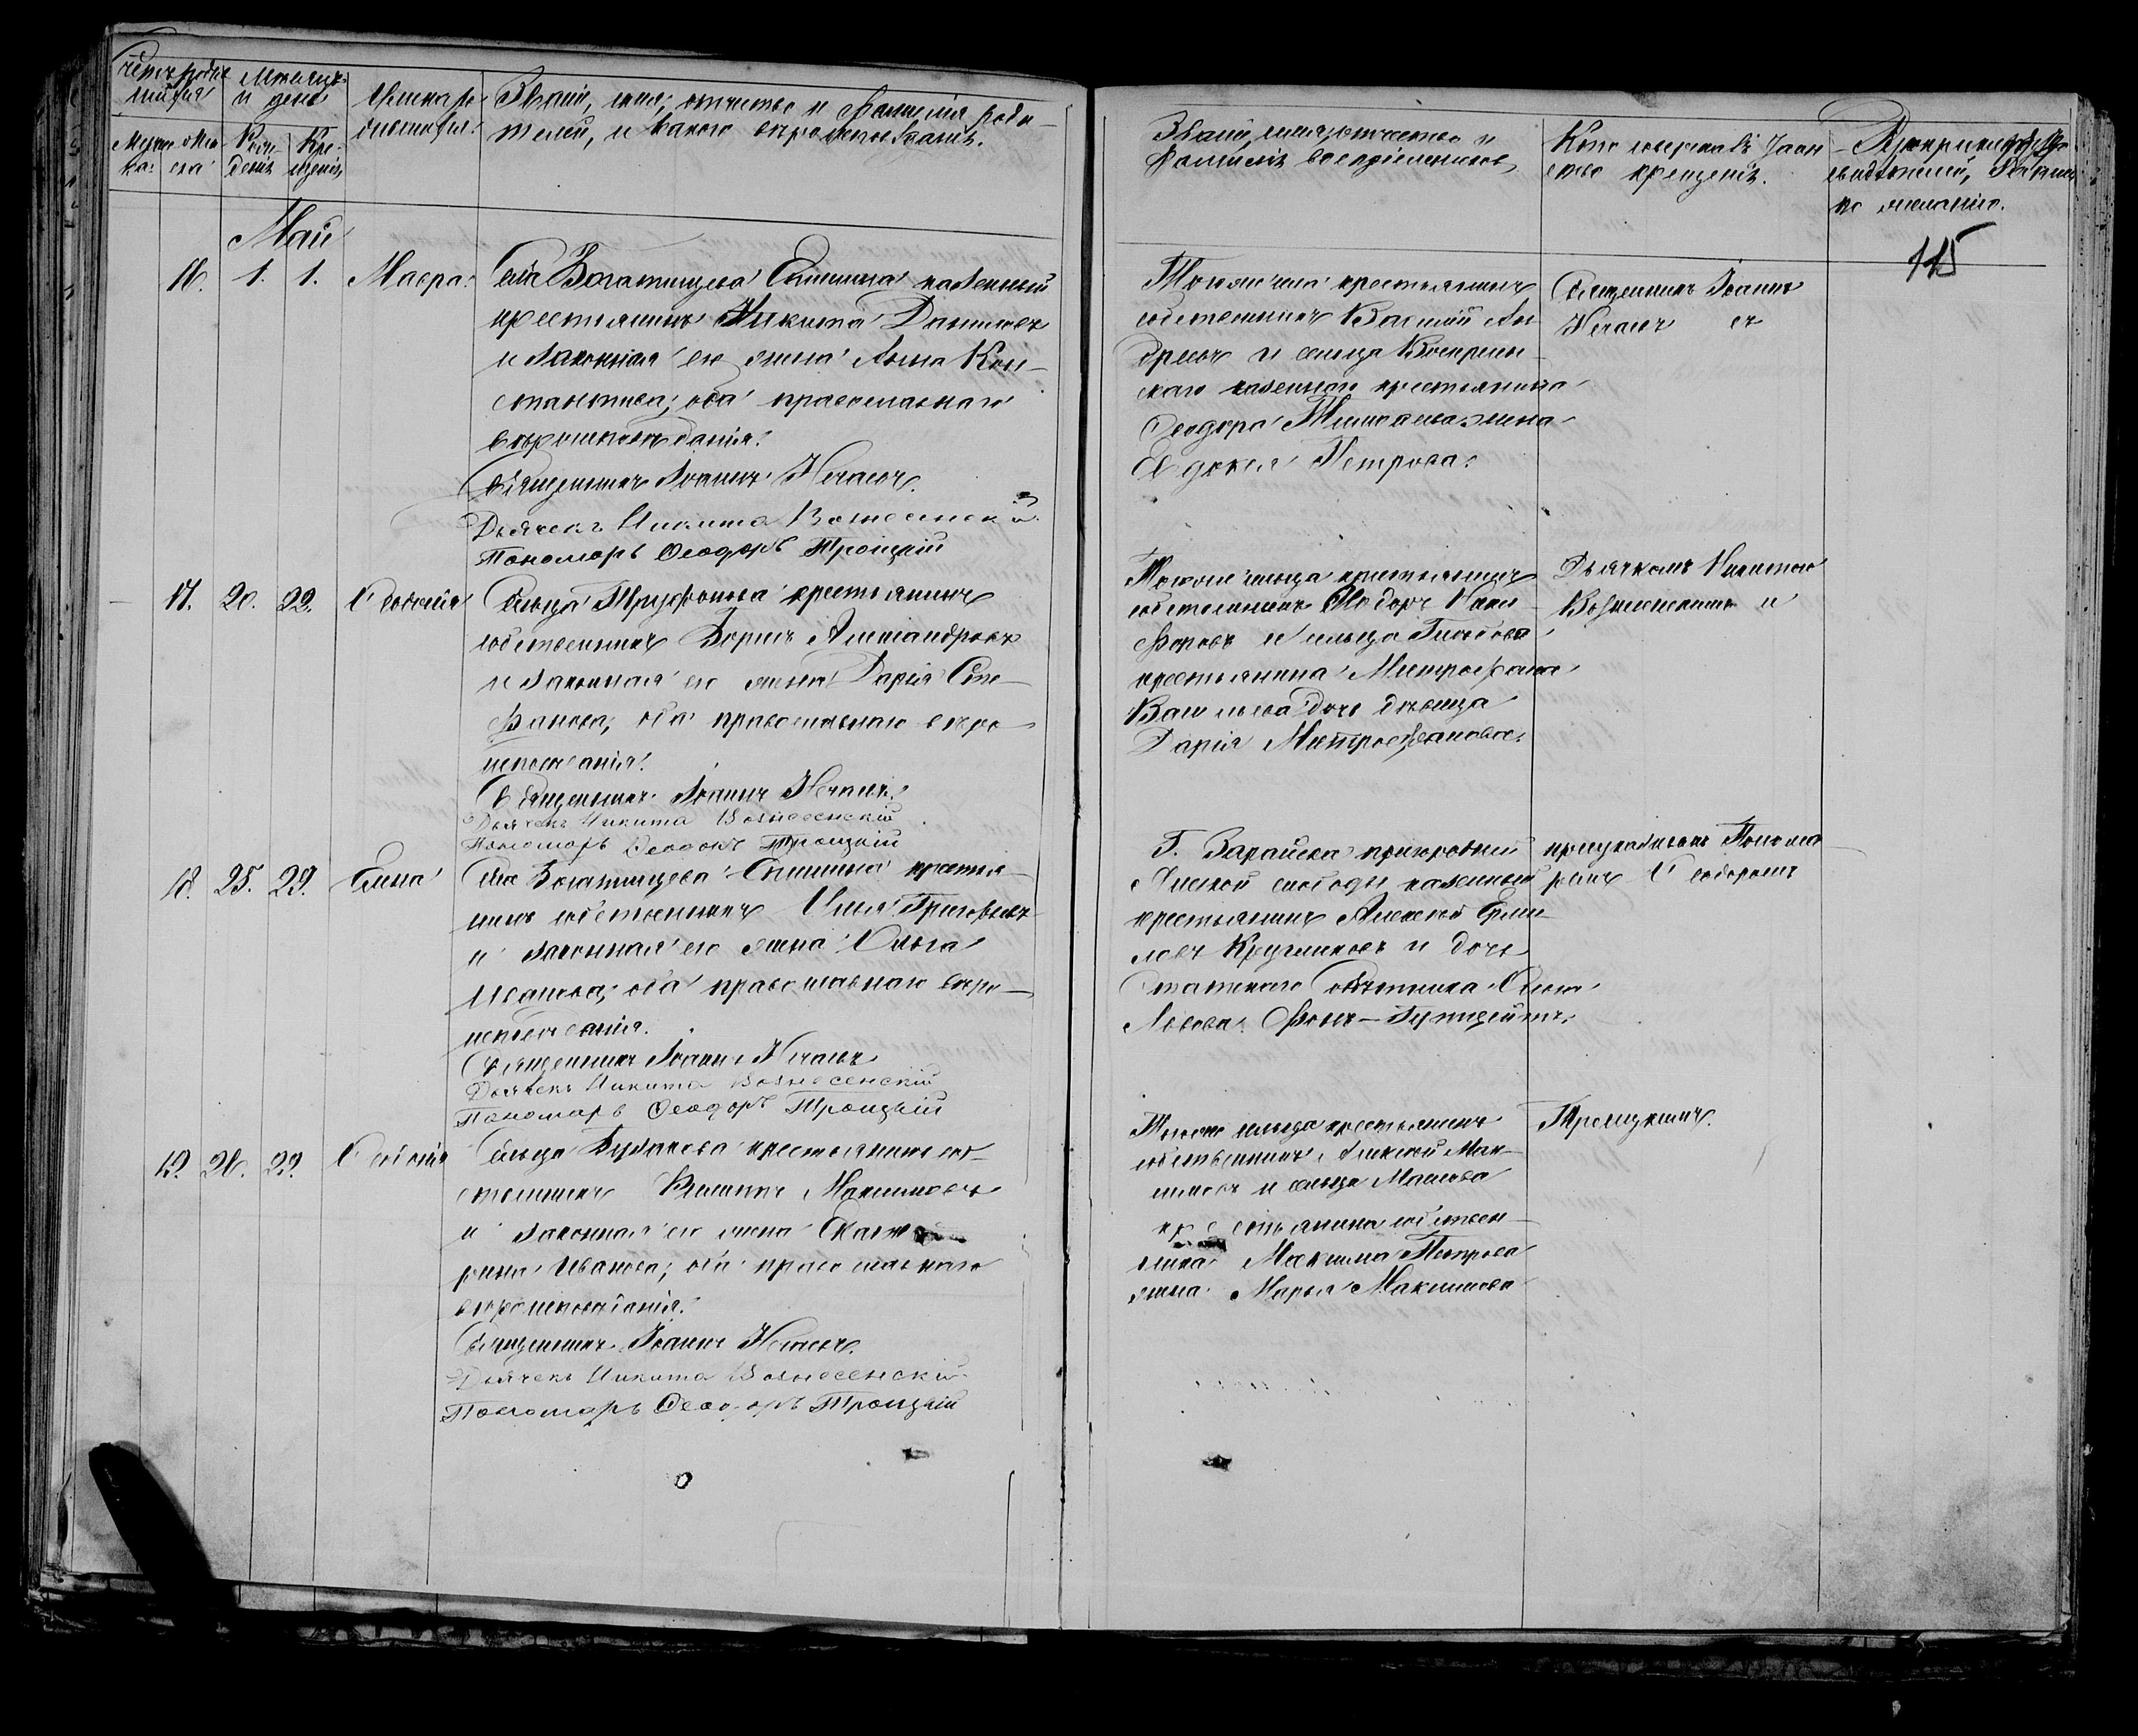 Счетъ родив
шихся
Мѣсяцъ
и день
Мужеска
Женска
Рож
денія
Кре
щенія
Имена ро
дившихся
Званіе, имя, отчество и фамилія роди
телей, и какого вѣроисповѣданія.
Званіе, имя, отчество и
фамилія воспріемниковъ
Кто совершалъ Таин
ство крещенія.
Рукоприкладство
свидѣтелей записи
по желанію.
115
Май
16. 1. 1. Мавра.
Села Богатищева Епишина казенный
крестьянинъ Никита Даниловъ
и законная его жена Анна Кон-
стантинова; оба православнаго
вѣроисповѣданія.
Священникъ Іоаннъ Нечаевъ.
Дьячекъ Никита Вознесенскій.
Пономарь Ѳеодоръ Троицкій
Тогоже села крестьянинъ
собственникъ Василій Ан
дреевъ и сельца Воскресен-
скаго казеннаго крестьянина
Ѳеодора жена
Евдокія Петрова.
Священникъ Іоаннъ
Нечаевъ съ
17. 20. 22. Софія
Сельца Труфонова крестьянинъ
собственникъ Борисъ Александровъ
и законная его жена Дарья Сте-
фанова; оба православнаго вѣро
исповѣданія.
Священникъ Іоаннъ Нечаевъ.
Дьячекъ Никита Вознесенскій
Пономарь Ѳеодоръ Троицкій
Тогоже сельца крестьянинъ
собственникъ Ѳеодоръ Ники
форовъ и сельца
крестьянина Митрофана
Васильева дочь дѣвица
Дарія Митрофанова.
Дьячкомъ Никитою
Вознесенскимъ и
18. 25. 29. Елена
Села Богатищева Епишина крестья-
нинъ собственникъ Илья Григорьевъ
и законная его жена Ольга
Иванова; оба православнаго вѣро-
исповѣданія.
Священникъ Іоаннъ Нечаевъ
Дьячекъ Никита Вознесенскій
Пономарь Ѳеодоръ Троицкій
Г. Зарайска пригородней
слободы казенный
крестьянинъ Алексѣй Ерми-
ловъ Кругликовъ и дочь
Статскаго Совѣтника
Львова Фонъ-
Пономо
ремъ Ѳеодоромъ
19. 26. 29. Софія
Сельца крестьянинъ соб-
ственникъ Филиппъ Максимовъ
и законная его жена Екате
рина Иванова; оба православнаго
вѣроисповѣданія.
Священникъ Іоаннъ Нечаевъ.
Дьячекъ Никита Вознесенскій
Пономарь Ѳеодоръ Троицкій
Тогоже сельца крестьянинъ
собственникъ Алексѣй Мак-
симовъ и сельца Маслова
крестьянина собствен-
ника Максима Петрова
жена Марья Максимова
Троицкимъ.